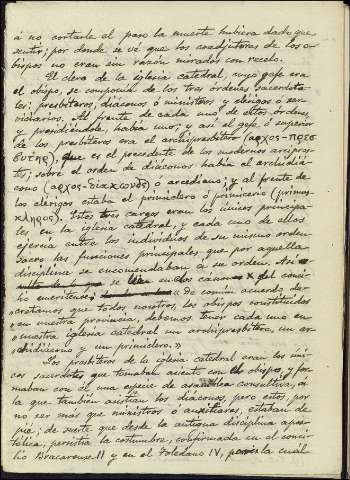 á no cortarle el paso la muerte hubiera dado que
sentir; por donde se vé que los coadjutores de los o-
bispos no eran sin razón mirados con recelo.
El clero de la iglesia catedral, cuyo gefe era
el obispo, se componia de los tres órdenes sacerdota-
les: presbíteros, diáconos ó ministros y clérigos ó ser-
viciarios. Al frente de cada uno de estos órdenes
y presidiéndole, habia uno; y así el gefe ó superior
de los presbíteros era el archipresbítero (αρχος-πρεσ
βυτης), que es el precedente de los modernos arcipres-
tes; sobre el orden de diáconos habia el archidiá-
cono (αρχος-διακωνος) ó arcediano; y al frente de
los clérigos estaba el primiclero ó primicerio (primus-
κληρος). Estos tres cargos eran los únicos principa-
les en la iglesia catedral, y cada uno de ellos
ejercia entre los individuos de su mismo orden
sacro las funciones principales que por aquella
disciplina se encomendaban á su orden. Así
se lee en el canon X del conci-
lio emeritense: « De común acuerdo de-
«cretamos que todos nosotros, los obispos constituidos
«en nuestra provincia, debemos tener cada uno en
«nuestra iglesia catedral un archipresbítero, un ar-
«chidiácono y un primiclero.»
Los presbíteros de la iglesia catedral eran los úni-
cos sacerdotes que tomaban asiento con el obispo, y for-
maban con él una especie de asamblea consultiva, á
la que tambien asistian los diáconos, pero estos, por
no ser más que ministros ó auxiliares, estaban de
pie; de suerte que desde la antigua disciplina apos-
tólica, persistia la costumbre, confirmada en el conci-
lio Bracarense II y en el Toledano IV, la cual